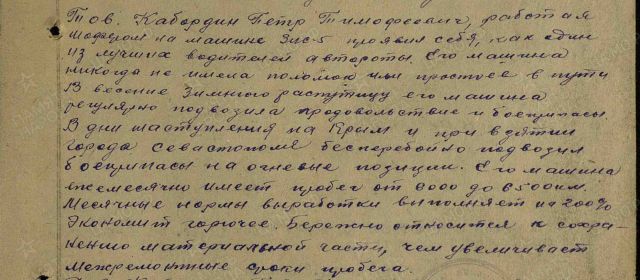 Тов. Кабордин Петр Тимофеевич, работая
шофером на машине Зис-5 проявил себя, как один
из лучших водителей автороты. Его машина
никогда не имела поломок или простоев в пути
В весенне зимнюю распутицу его машина
регулярно подвозила продовольствие и боеприпасы.
В дни наступления на Крым и при взятии
города Севастополь бесперебойно подвозил
боеприпасы на огневые позиции. Его машина
ежемесячно имеет пробег от 6000 до 6500 км.
Месячные нормы выработки выполняет на 200%
Экономит горючее. Бережно относится к сохра-
нению материальной части, чем увеличивает
межремонтные сроки пробега.